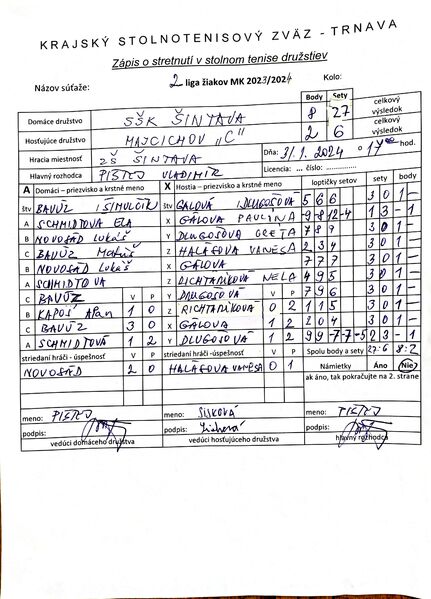 KRAJSKÝ STOLNOTENISOVÝ ZVÄZ - TRNAVA
Zápis o stretnutí v stolnom tenise družstiev
Názov súťaže: 2 liga žiakov MK 2023/2024 Kolo:
Body Sety celkový výsledok
Domáce družstvo SŠK ŠINTAVA 8 27
Hosťujúce družstvo MAJCICHOV „C“ 2 6 celkový výsledok
Hracia miestnosť ZŠ ŠINTAVA Dňa: 31.1.2024 o 17 00 hod.
Hlavný rozhodca PIŠTEJ VLADIMÍR Licencia: ... číslo:
A Domáci - priezvisko a krstné meno X Hostia - priezvisko a krstné meno loptičky setov sety body
štv BAVÚZ ŠIMULČÍK štv GÁLOVÁ DLUGOŠOVÁ 5 6 6 3 0 1 -
A SCHMIDTOVÁ ELA X GÁLOVÁ PAULÍNA -9 -8 12 -4 1 3 - 1
B NOVOSÁD Lukáš Y DLUGOŠOVÁ GRETA 7 8 9 3 0 1 -
C BAVÚZ Matúš Z HALÁSOVÁ VANESA 2 3 4 3 0 1 -
B NOVOSÁD Lukáš X GÁLOVÁ 7 7 7 3 0 1 -
A SCHMIDTOVÁ Z NELA 4 9 5 3 0 1 -
C BAVÚZ V P Y DLUGOŠOVÁ V P 7 9 6 3 0 1 -
B KAPOŠ Alan 1 0 Z 0 2 1 1 5 3 0 1 -
C BAVÚZ 3 0 X GÁLOVÁ 1 2 2 0 4 3 0 1 -
A SCHMIDTOVÁ 1 2 Y DLUGOŠOVÁ 1 2 9 9 -7 -7 -5 2 3 - 1
striedaní hráči - úspešnosť striedaní hráči - úspešnosť Spolu body a sety 27:6 8:2
NOVOSÁD 2 0 HALÁSOVÁ VANESA 0 1 Námietky Áno Nie
ak áno, tak pokračujte na 2. strane
meno: PIŠTEJ meno: SISKOVÁ meno: PIŠTEJ
podpis: podpis: podpis:
vedúci domáceho družstva vedúci hosťujúceho družstva hlavný rozhodca